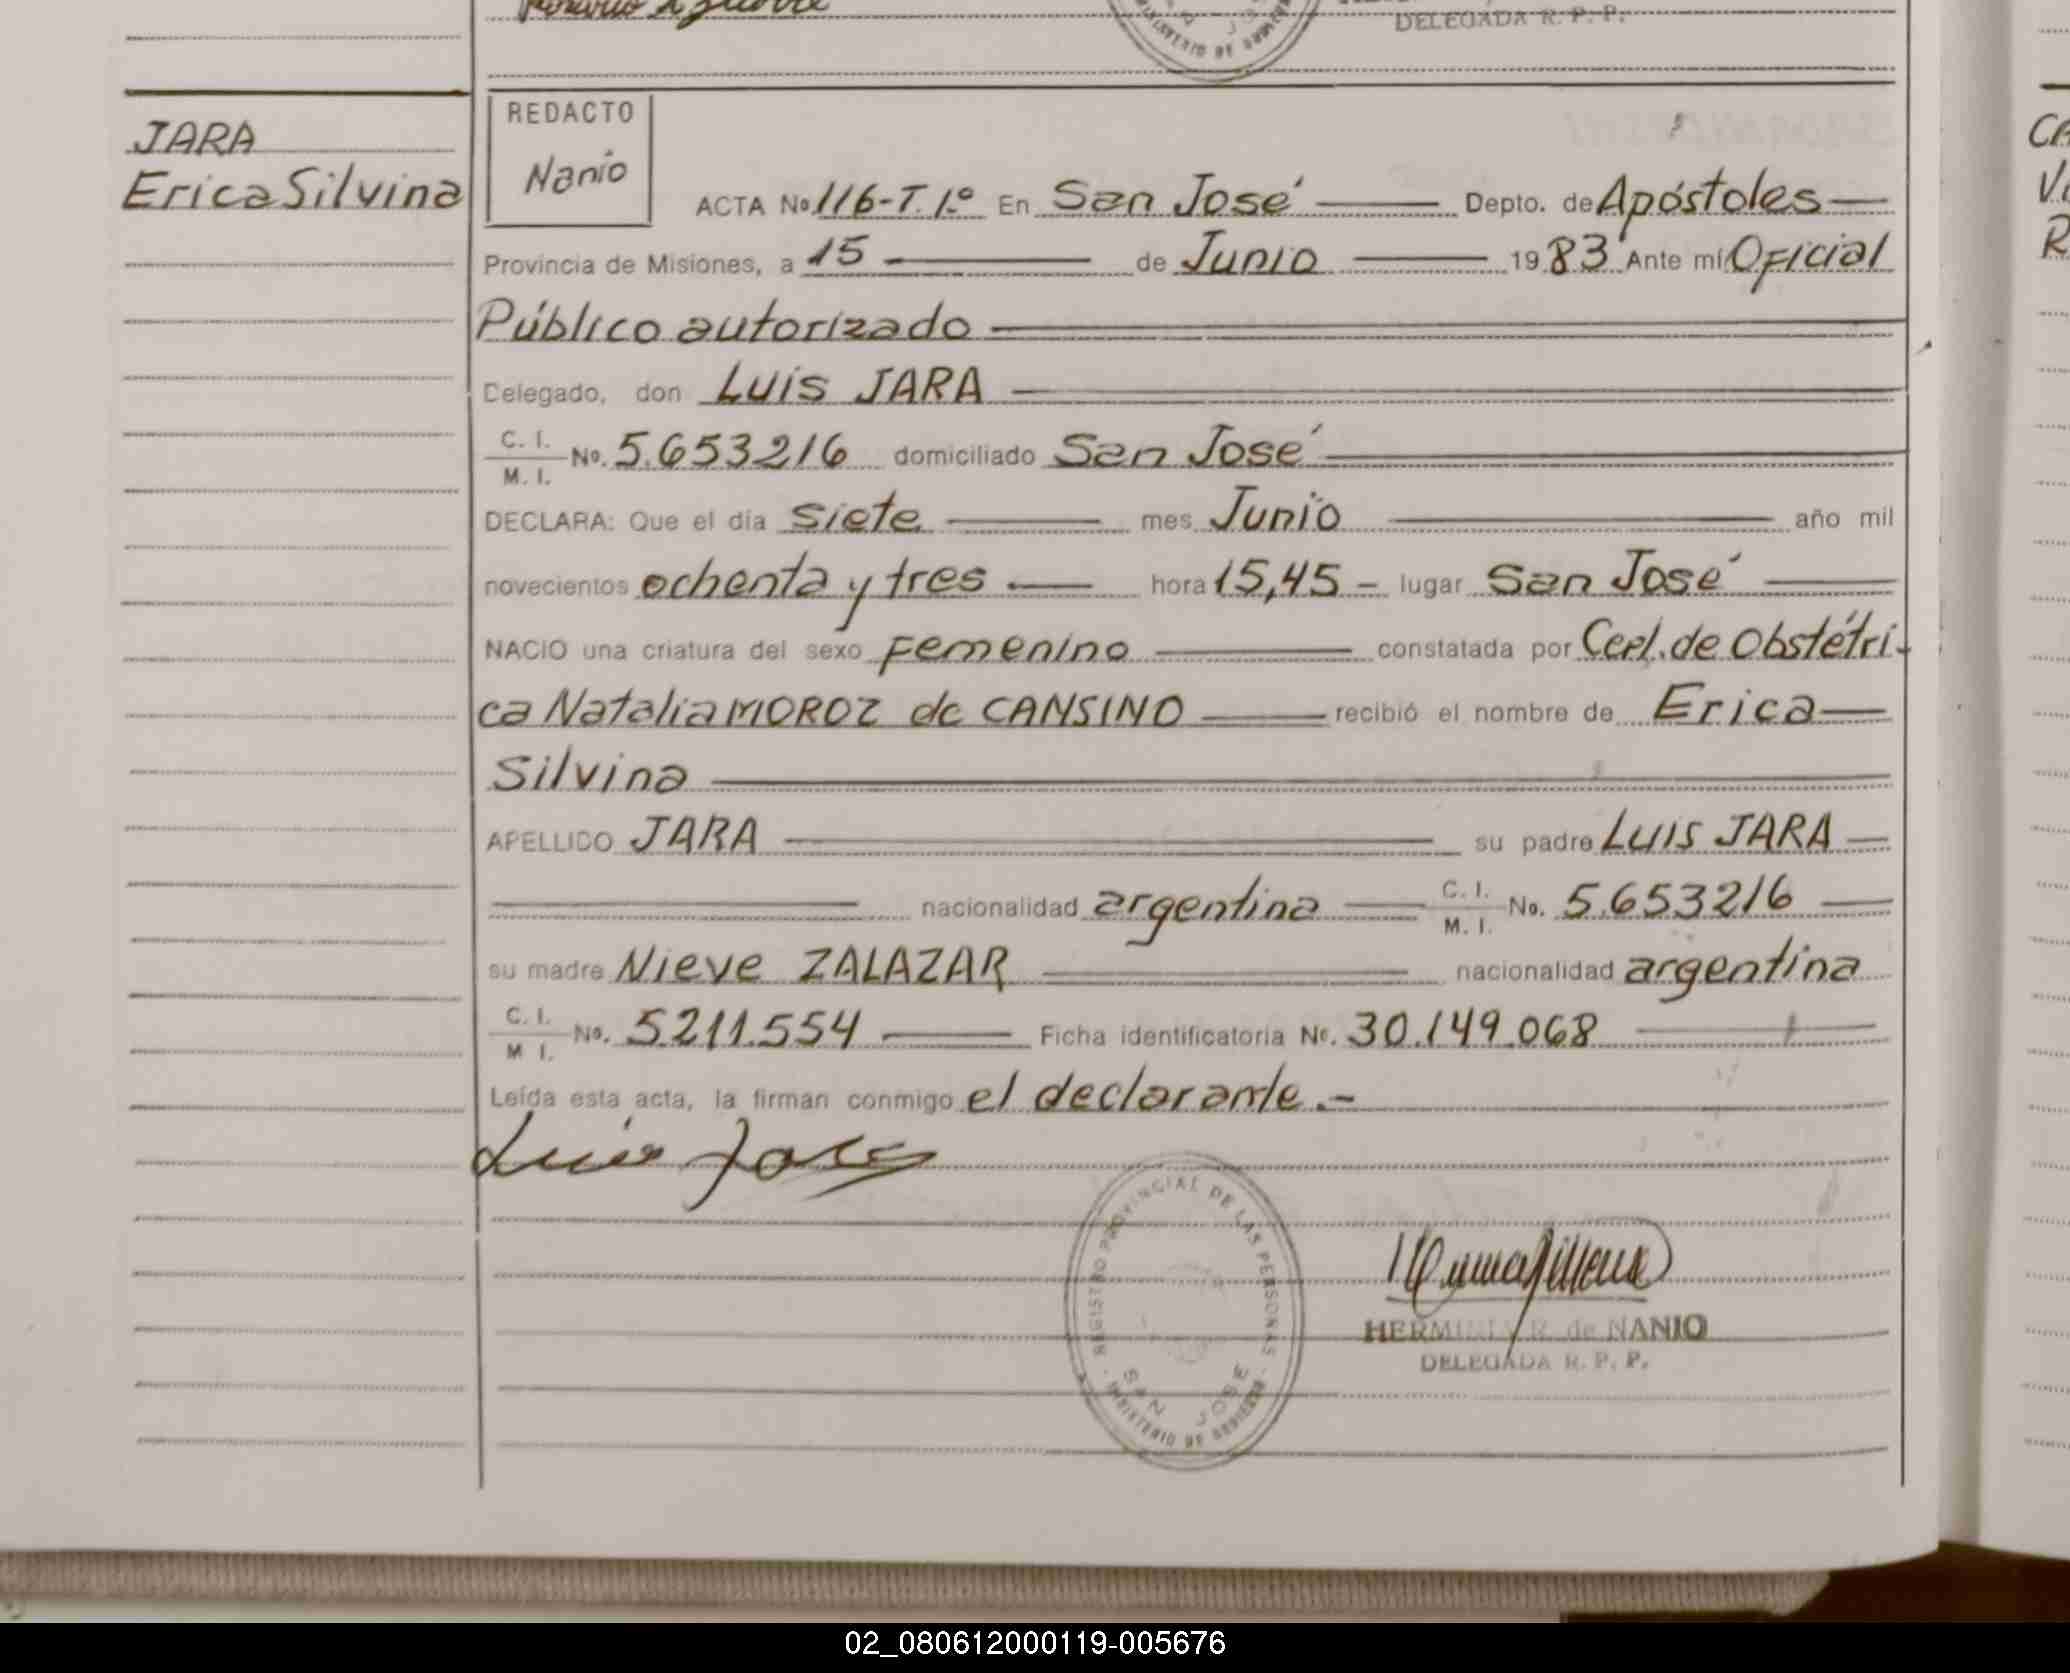 DELEGADA R. P. P.
JARA
Erica Silvina
REDACTO
Nanio
ACTA No 116-T. 1º En San José Depto. de Apóstoles
Provincia de Misiones, a 15 de Junio 1983 Ante mí Oficial
Público autorizado
Delegado, don Luis JARA
C. I.
M. I. No. 5.653216 domiciliado San José
DECLARA: Que el día siete mes Junio año mil
novecientos ochenta y tres hora 15,45 - lugar San José
NACIO una criatura del sexo Femenino constatada por Cert. de Obstétri-
ca Natalia MOROZ de CANSINO recibió el nombre de Erica
Silvina
APELLIDO JARA su padre Luis JARA
nacionalidad argentina C. I. M. I. No. 5.653216
su madre Nieve ZALAZAR nacionalidad argentina
C. I.
M I. No. 5.211.554 Ficha identificatoria No. 30.149.068
Leída esta acta, la firman conmigo el declarante.-
Luis Jara
REGISTRO PROVINCIAL DE LAS PERSONAS
SAN JOSE
MINISTERIO DE GOBIERNO
HERMINIA R. de NANIO
DELEGADA R. P. P.
02_080612000119-005676